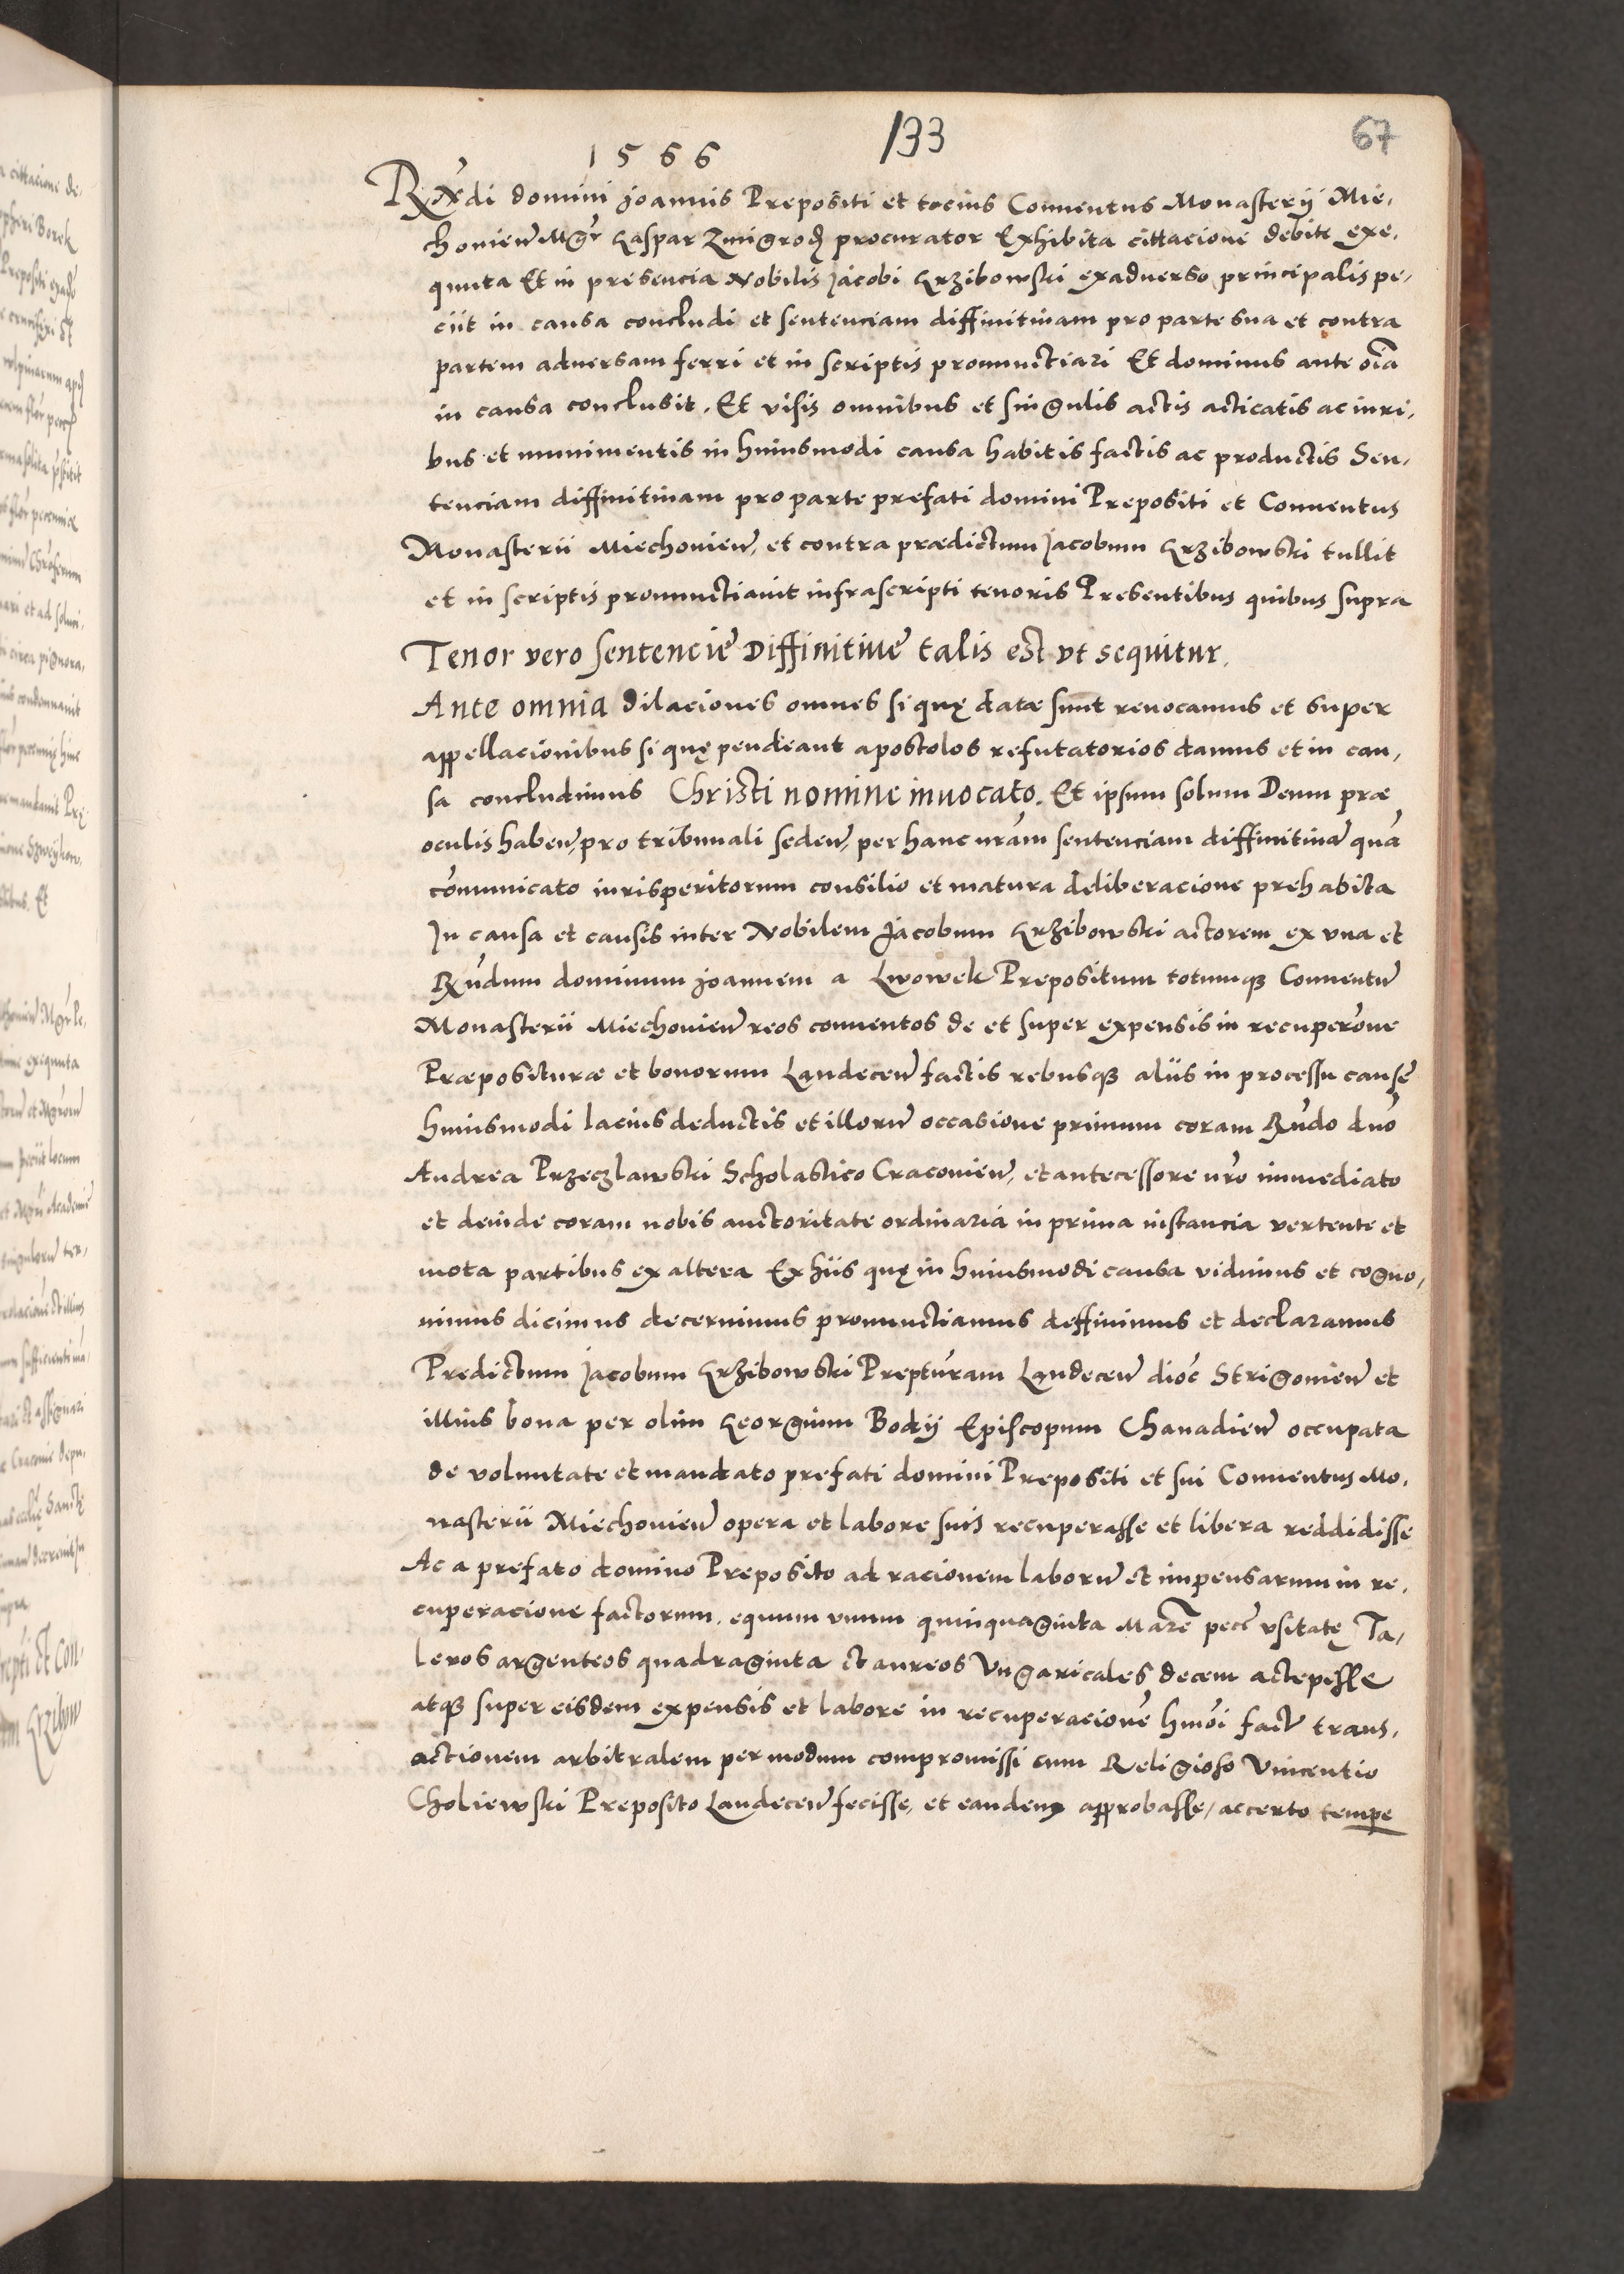 133
67
1566
Rndi domini Joannis Prepositi et tocius Conuentus Monasterij Mie,
chouien Mgr Gaspar Zmigrod procurator Exhibita cittacione debite exe,
quuta Et in presencia Nobilis Jacobi Grzibowski exaduerso principalis pe,
ciit in causa concludi et sentenciam diffinitiuam pro parte sua et contra
partem aduersam ferri et in scriptis pronunctiari Et dominus ante oia
in causa conclusit. Et visis omnibus et singulis actis acticatis ac iuri,
bus et munimentis in huiusmodi causa habitis factis ac productis Sen,
tenciam diffinitiuam pro parte prefati domini Prepositi et Conuentus
Monasterii Miechouien, et contra prædictum Jacobum Grzibowski tullit
et in scriptis pronunctiauit infrascripti tenoris Presentibus quibus supra
Tenor vero sentencie Diffinitiue talis est vt sequitur.
Ante omnia dilaciones omnes si quę datæ sunt reuocamus et super
appellacionibus si quę pendeant apostolos refutatorios damus et in cau,
sa concludimus Christi nomine inuocato. Et ipsum solum Deum præ
oculis haben, pro tribunali seden, per hanc nram sentenciam diffinitiua qua
comunicato iurisperitorum consilio et matura deliberacione prehabita
In causa et causis inter Nobilem Jacobum Grzibowski actorem ex vna et
Rndum dominum Joannem a Lwowek Prepositum totumq Conuentu
Monasterii Miechouien reos conuentos de et super expensis in recuperone
Præpositurae et bonorum Landecen factis rebusq aliis in processu cause
huiusmodi lacius deductis et illoru occasione primum coram Rndo dno
Andrea Przeczlawski Scholastico Cracouien, et antecessore nro immediato
et deinde coram nobis auctoritate ordinaria in prima instancia vertente et
mota partibus ex altera Ex hiis quę in huiusmodi causa vidimus et cogno,
uimus dicimus decernimus pronunctiamus deffinimus et declaramus
Predictum Jacobum Grzibowski Prepturam Landecen dioc Strigonien et
illius bona per olim Georgium Bodij Episcopum Chanadien occupata
de voluntate et mandato prefati domini Prepositi et sui Conuentus Mo,
nasterii Miechouien opera et labore suis recuperasse et libera reddidisse
Ac a prefato domino Preposito ad racionem laboru et impensarum in re,
cuperacione factorum, equum vnum quinquaginta Marc pecc vsitatę Ta,
leros argenteos quadraginta et aureos Vngaricales decem accepisse
atq super eisdem expensis et labore in recuperacione hmoi fact trans,
actionem arbitralem per modum compromissi cum Religioso Vincentio
Choliewski Preposito Landecen fecisse, et eandem approbasse, ac certo tempe